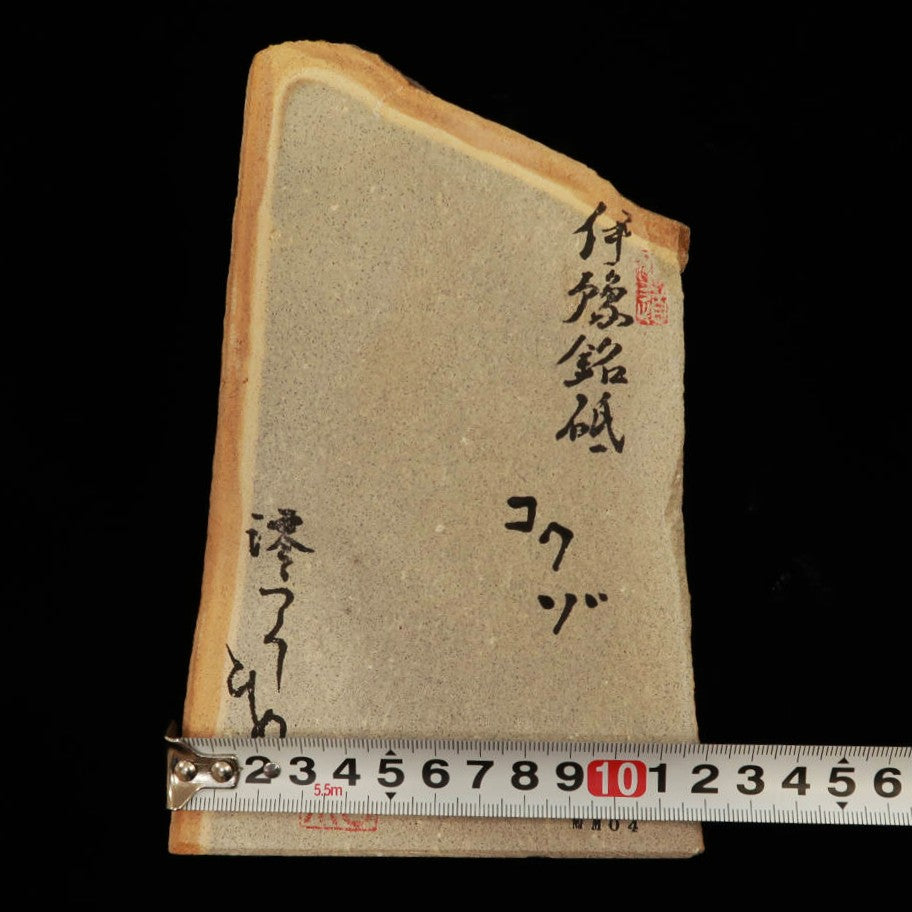 伊豫銘砥
コクゾ
澪つくしの
5.5m
2 3 4 5 6 7 8 9 10 1 2 3 4 5 6
MM04